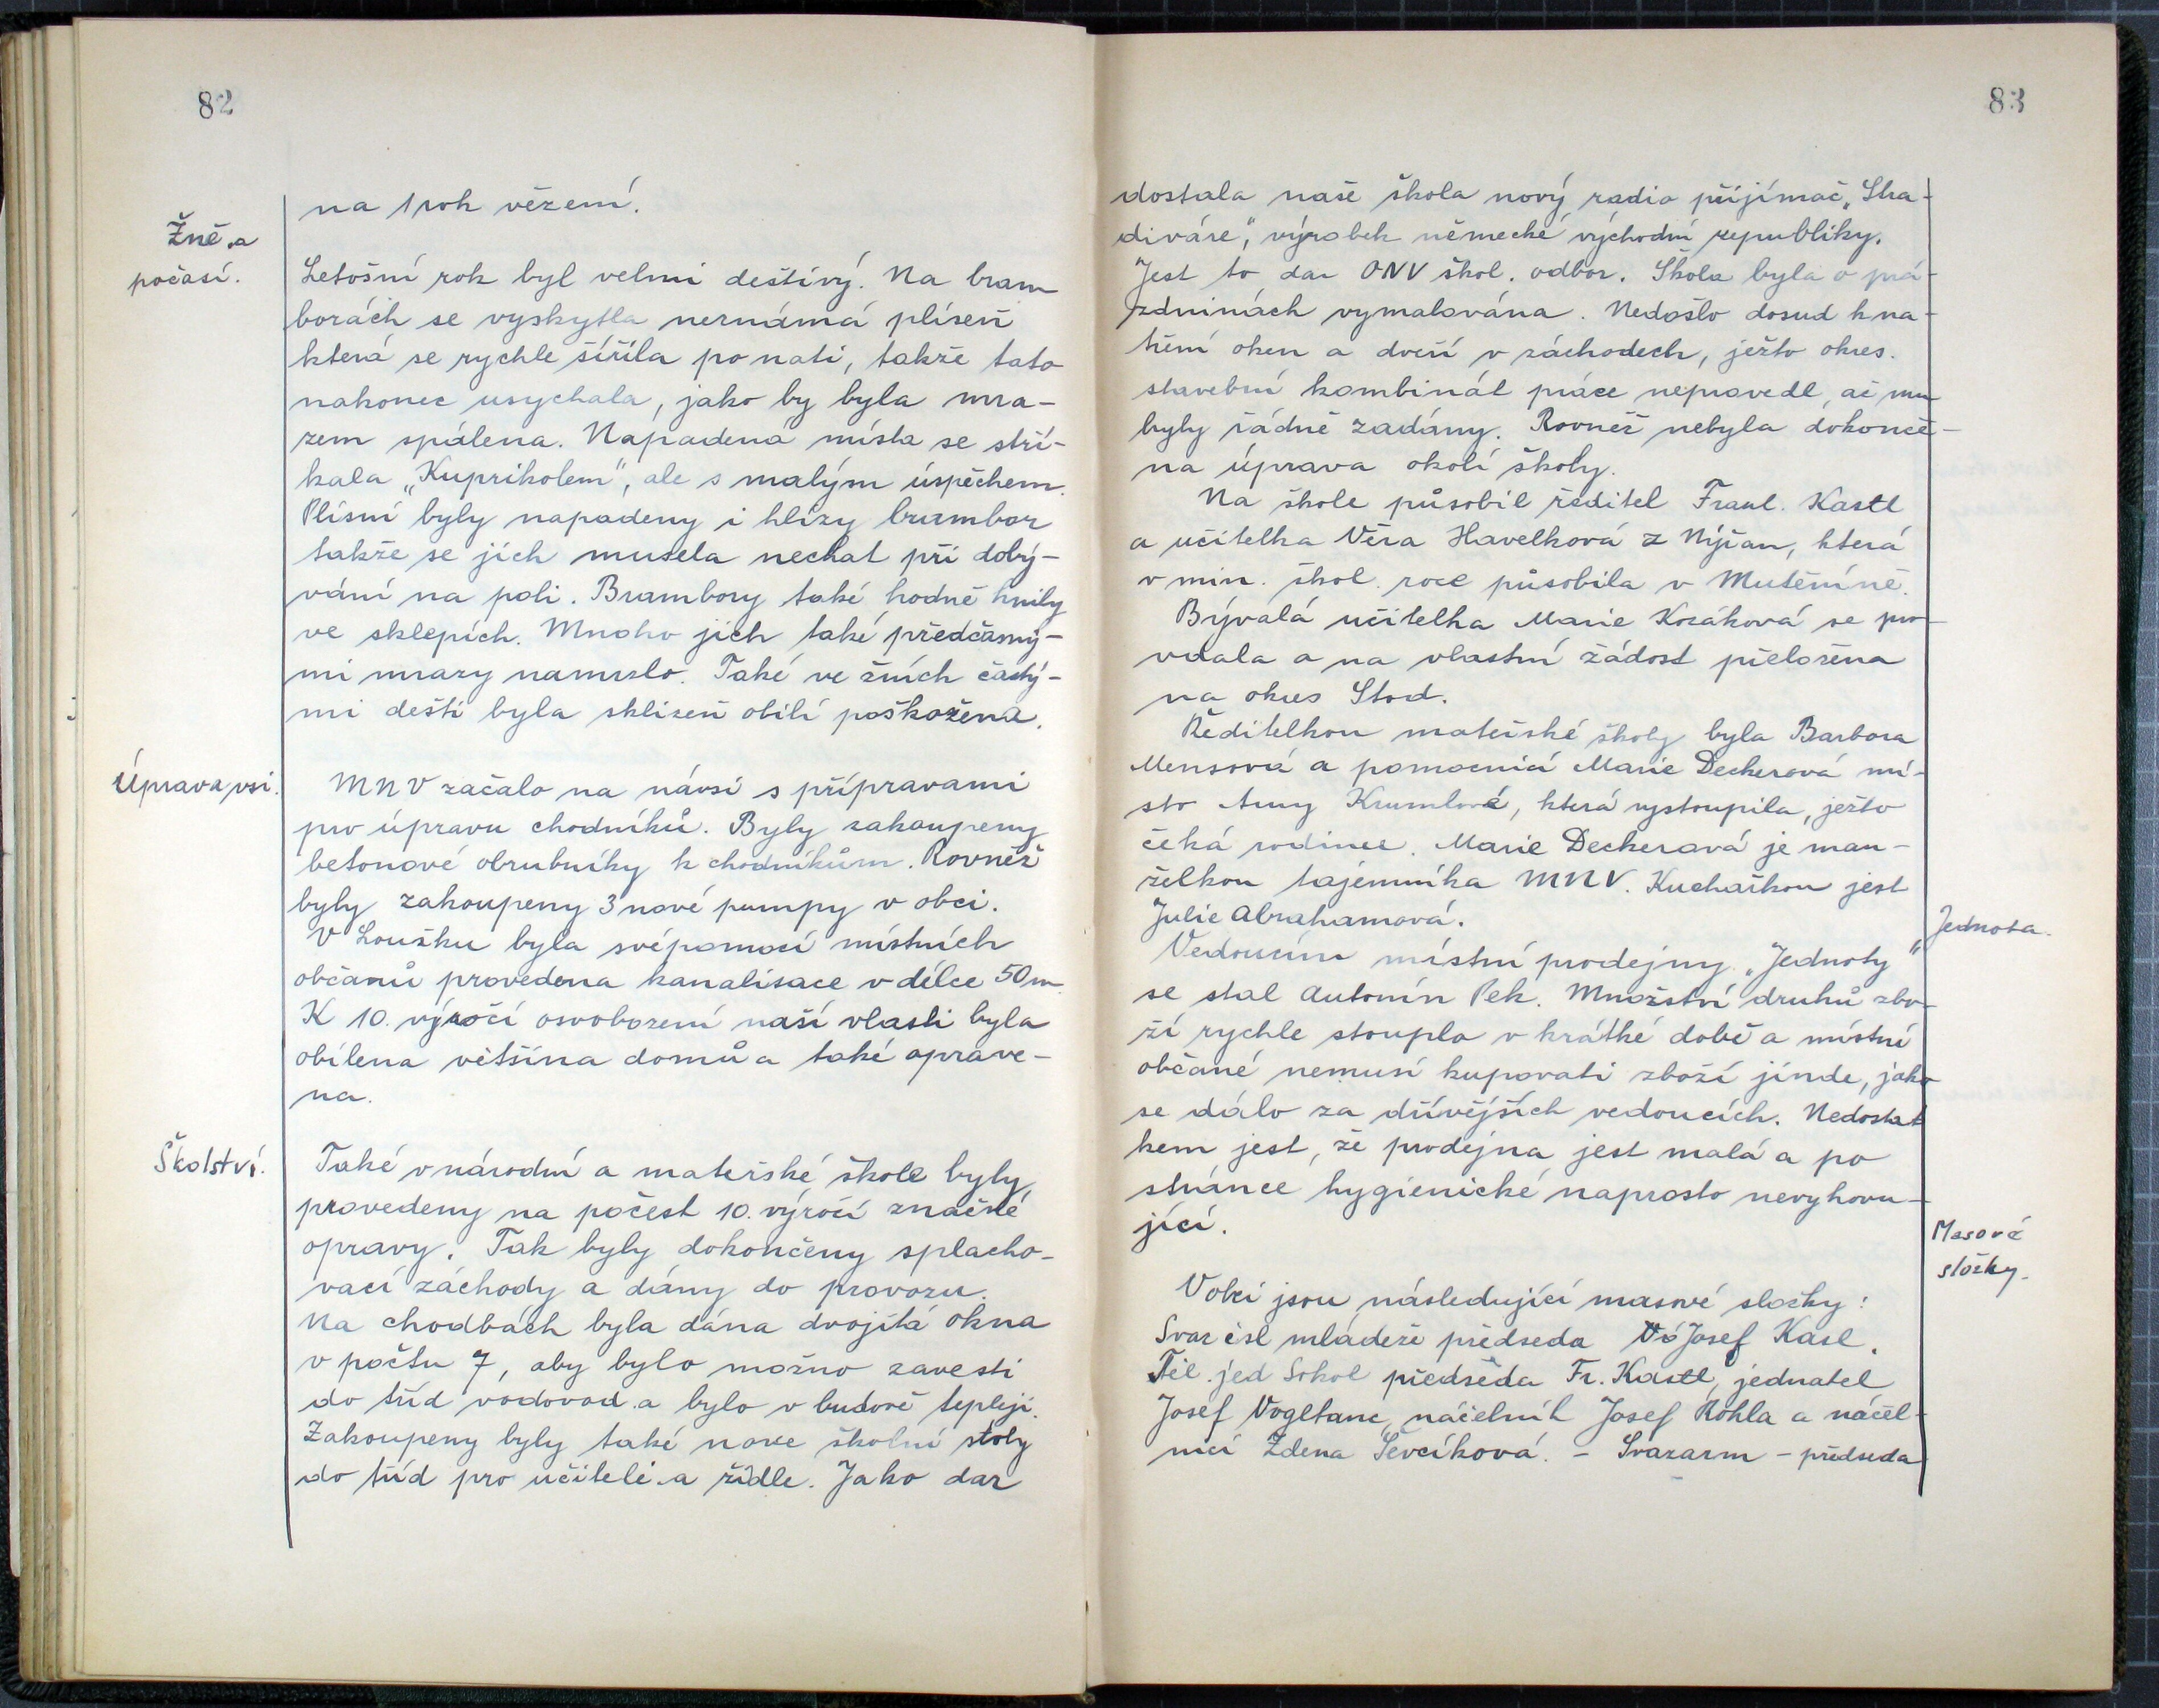 82
na 1 rok vězení.
Žně a
počasí.
Letošní rok byl velmi deštivý. Na bram
borách se vyskytla neznámá plíseň
která se rychle šířila po nati, takže tato
nakonec usychala, jako by byla mra-
zem spálena. Napadená místa se strí-
kala „Kuprikolem", ale s malým úspěchem.
Plísní byly napadeny i hlízy brambor
takže se jich musela nechat při dobý-
vání na poli. Brambory také hodně hnily
ve sklepích. Mnoho jich také předčasný-
mi mrazy namrzlo. Také ve žních častý-
mi dešti byla sklizeň obilí poškozena.
Úprava vsi.
MNV začalo na návsi s přípravami
pro úpravu chodníků. Byly zakoupeny
betonové obrubníky k chodníkům. Rovněž
byly zakoupeny 3 nové pumpy v obci.
V Loužku byla svépomocí místních
občanů provedena kanalisace v délce 50 m.
K 10. výročí osvobození naší vlasti byla
obílena většina domů a také oprave-
na.
Školství.
Také v národní a mateřské škole byly
provedeny na počest 10. výročí značné
opravy. Tak byly dokončeny splacho-
vací záchody a dány do provozu.
Na chodbách byla dána dvojitá okna
v počtu 7, aby bylo možno zavesti
do tříd vodovod a bylo v budově tepleji.
Zakoupeny byly také nove školní stoly
do tříd pro učitele a židle. Jako dar
83
dostala naše škola nový radio přijímač „Stra-
diváre", výrobek německé východní republiky.
Jest to dar ONV škol. odbor. Škola byla o prá-
zdninách vymalována. Nedošlo dosud k na-
tření oken a dveří v záchodech, ježto okres.
stavební kombinát práce neprovedl, ač mu
byly řádně zadány. Rovněž nebyla dokonče-
na úprava okolí školy.
Na škole působil ředitel Frant. Kastl
a učitelka Věra Havelková z Nýřan, která
v min. škol. roce působila v Mutěníně.
Bývalá učitelka Marie Kozáková se pro-
vdala a na vlastní žádost přeložena
na okres Stod.
Ředitelkou mateřské školy byla Barbora
Mensová a pomocnicí Marie Deckerová mí-
sto Anny Krumlové, která vystoupila, ježto
čeká rodinee. Marie Deckerová je man-
želkou tajemníka MNV. Kuchařkou jest
Julie Abrahamová.
Jednota.
Vedoucím místní prodejny „Jednoty"
se stal Antonín Pek. Množství druhů zbo-
ží rychle stouplo v krátké době a místní
občané nemusí kupovati zboží jinde, jako
se dálo za dřívějších vedoucích. Nedostat
kem jest, že prodejna jest malá a po
stránce hygienické naprosto nevyhovu-
jící.
Masové
složky.
V obci jsou následující masové složky:
Svaz čsl mládeže předseda Josef Kasl.
Těl. jed Sokol předseda Fr. Kastl, jednatel
Josef Vogltanc, náčelník Josef Róhla a náčel-
nicí Zdena Ševčíková. - Svazarm - předseda